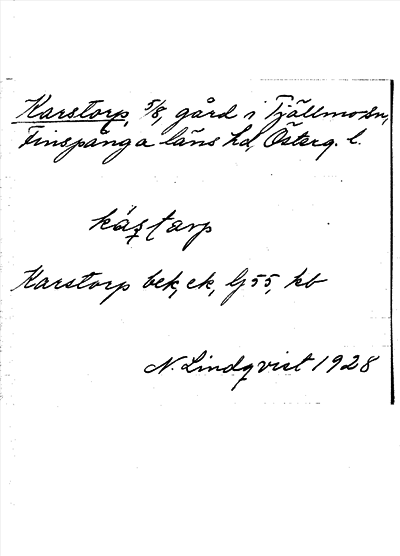 Karstorp, 5/8, gård i Tjällmo sn,
Finspånga läns hd, Österg. l.
kás̩tarp
Karstorp bek, ek, lj 55, kb
N. Lindqvist 1928